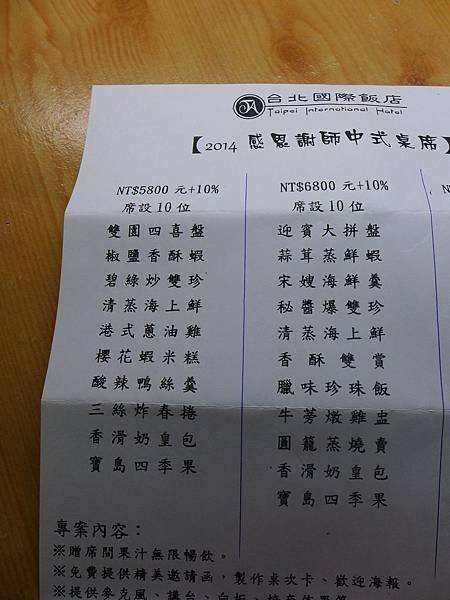 台北國際飯店
Taipei International Hotel
【2014 感恩謝師中式桌席】
NT$5800 元+10%
席設 10 位
雙園四喜盤
椒鹽香酥蝦
碧綠炒雙珍
清蒸海上鮮
港式蔥油雞
櫻花蝦米糕
酸辣鴨絲羹
三絲炸春捲
香滑奶皇包
寶島四季果
NT$6800 元+10%
席設 10 位
迎賓大拼盤
蒜茸蒸鮮蝦
宋嫂海鮮羹
秘醬爆雙珍
清蒸海上鮮
香酥雙賞
臘味珍珠飯
牛蒡燉雞盅
圓籠蒸燒賣
香滑奶皇包
寶島四季果
專案內容：
※贈席間果汁無限暢飲。
※免費提供精美邀請函，製作桌次卡、歡迎海報。
※提供麥克風、講台、白板、